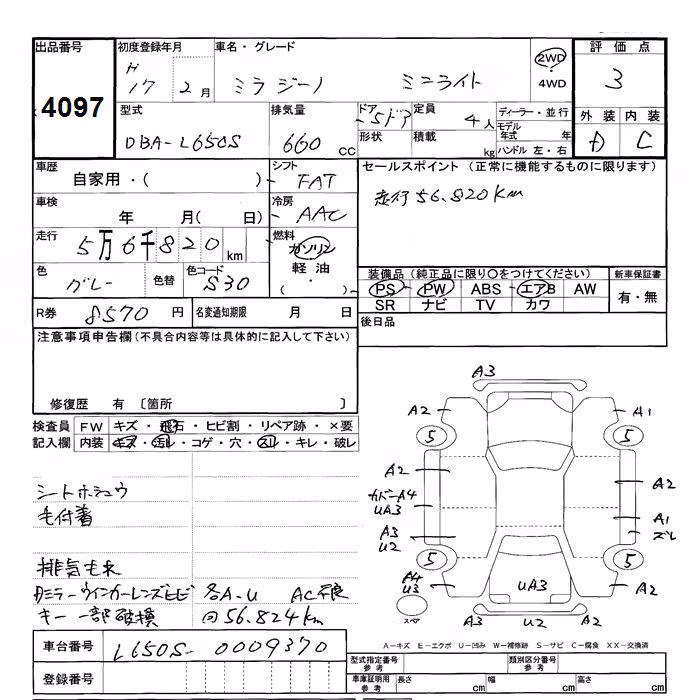 出品番号 初度登録年月 車名・グレード 2WD 評価点
4097 H 17 2月 ミラ ジーノ ミニライト 4WD 3
型式 排気量 ドア 定員 ディーラー・並行 外装 内装
DBA-L650S 660 cc 5ドア 4人 モデル年式 年 D C
形状 積載 kg ハンドル 左・右
車歴 シフト セールスポイント (正常に機能するものに限ります)
自家用・( ) FAT 走行56.820Km
車検 冷房
年 月( 日) AAC
走行 燃料
5万6千820km ガソリン
色 色替 色コード 軽油 装備品 (純正品に限り○をつけてください) 新車保証書
グレー S30 ( ・ ) PS PW ABS エアB AW 有・無
SR ナビ TV カワ
R券 8570円 名変通知期限 月 日 後日品
注意事項申告欄(不具合内容等は具体的に記入して下さい)
修復歴 有 〔箇所 〕
検査員 FW キズ・飛石・ヒビ割・リペア跡・×要
記入欄 内装 キズ・汚れ・コゲ・穴・スレ・キレ・破レ
シートホシュウ
毛付着
排気モレ
ミラーウインカーレンズヒビ 各A-U AC不良
キー一部破損 @56.824km
A3
A2 A1
5 5
A2 A2
カバーA4
UA3 A1
A3 ズレ
U2
5 5
A4 UA3 A2
U3
スペア A3 U2 A2
A-キズ E-エクボ U-凹み W-補修跡 S-サビ C-腐食 XX-交換済
車台番号 L650S-0009370
登録番号
型式指定番号 参考 類別区分番号 参考
車庫証明用 参考 長さ cm 幅 cm 高さ cm